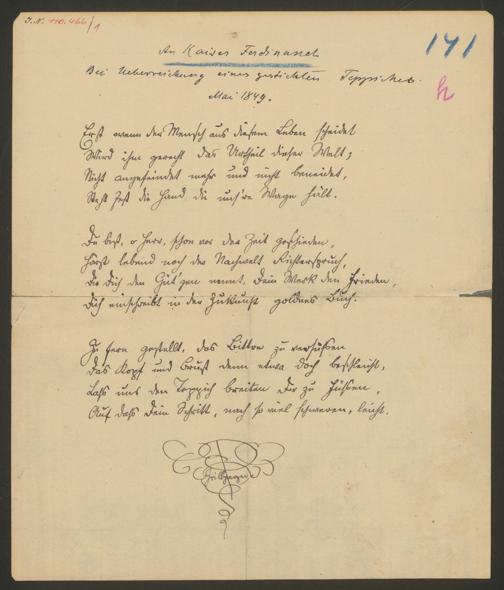 I.N. 110.466/1
141
An Kaiser Ferdinand
Bei Ueberreichung eines gestickten Teppiches.
Mai 1849.
Erst wenn der Mensch aus diesem Leben scheidet
Wird ihm gerecht das Urtheil dieser Welt;
Nicht angefeindet mehr und nicht beneidet,
Steht fest die Hand die uns're Wage hält.
Du bist, o Herr, schon vor der Zeit geschieden,
Hörst lebend noch der Nachwelt Richterspruch,
Die Dich den Güt'gen nennt, Dein Werk den Frieden,
Dich einschreibt in der Zukunft goldnes Buch.
Zu fern gestellt, das Bittre zu versüßen
Das Kopf und Brust denn etwa doch beschleicht,
Lass uns den Teppich breiten Dir zu Füssen,
Auf dass Dein Schritt, nach so viel schweren, leicht.